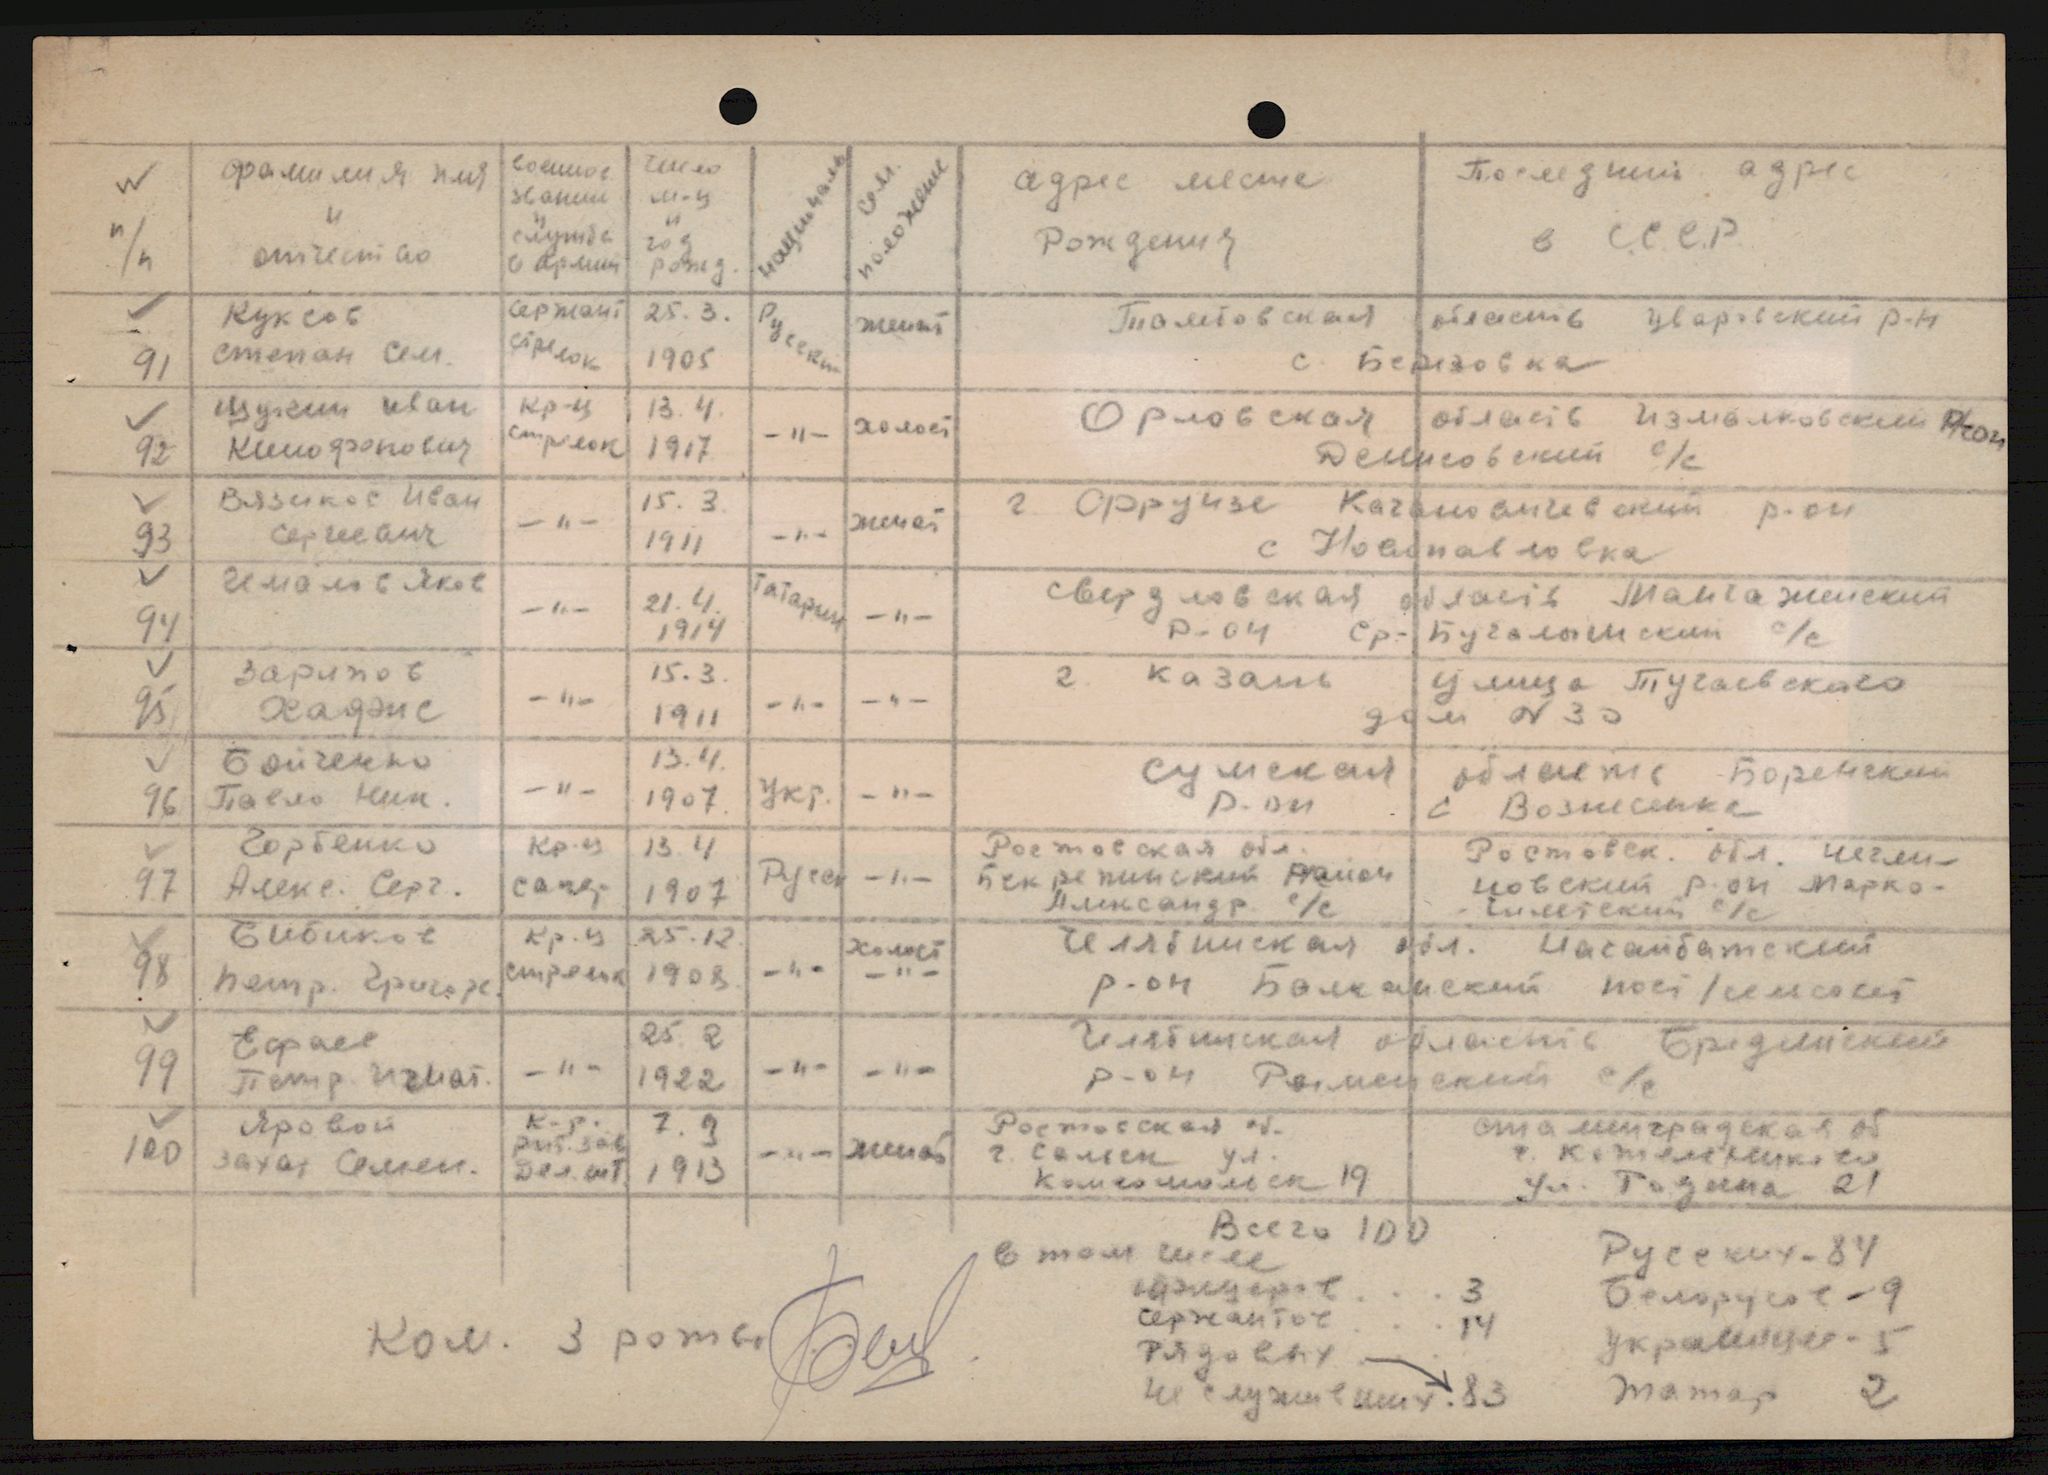 № п/п фамилия имя и отчество военное звание и служба в армии число м-ц и год рожд. националь сем. положение адрес место Рождения Последний адрес в С.С.С.Р.
91 Куксов Степан Сем. Сержант стрелок 25.3. 1905 Русский женат Тамбовская область Уваровский р-н
с. Березовка
92 Щукин Иван Кинофонович Кр-ц стрелок 13.4. 1917 -"- холост Орловская область Измалковский р/он
Денисовский с/с
93 Вязиков Иван Сергеевич -"- 15.3. 1911 -"- женат г. Фрунзе Кагановичевский р-он
с Новопавловка
94 Ималов Яков -"- 21.4. 1914 Татарин -"- Свердловская область Манчаженский
р-он Ср.-Бугалышский с/с
95 Зарипов Хафис -"- 15.3. 1911 -"- -"- г. Казань улица Тугаевского
дом N 30
96 Бойченко Павло Ник. -"- 13.4. 1907. Укр. -"- Сумская область Боренский
р-он с Вознесенка
97 Горбенко Алекс. Серг. Кр-ц сапер 13.4 1907 Русск -"- Ростовская обл.
район
Александр. с/с
Ростовск. обл.
р-он
с/с
98 Бибиков Петр. Григорь. Кр-ц стрелок 25.12. 1908. -"- холост -"- Челябинская обл. Нагайбакский
р-он Балканский пос/сельсовет
99 Ефаев Петр. Игнат. -"- 25.2 1922 -"- -"- Челябинская область Брединский
р-он Рымнский с/с
100 Яровой Захар Семен. К-р. Дел. 7.9 1913 -"- женат Ростовская об.
г. Сальск ул.
Комсомольск 19
Сталинградская об
г. Котельниково
ул. Родина 21
Всего 100
в том числе
офицеров . . . 3
сержантов . . . 14
Рядовых
не служивших . 83
Русских - 84
Белорусов - 9
Украинцев - 5
Татар 2
Ком. 3 роты